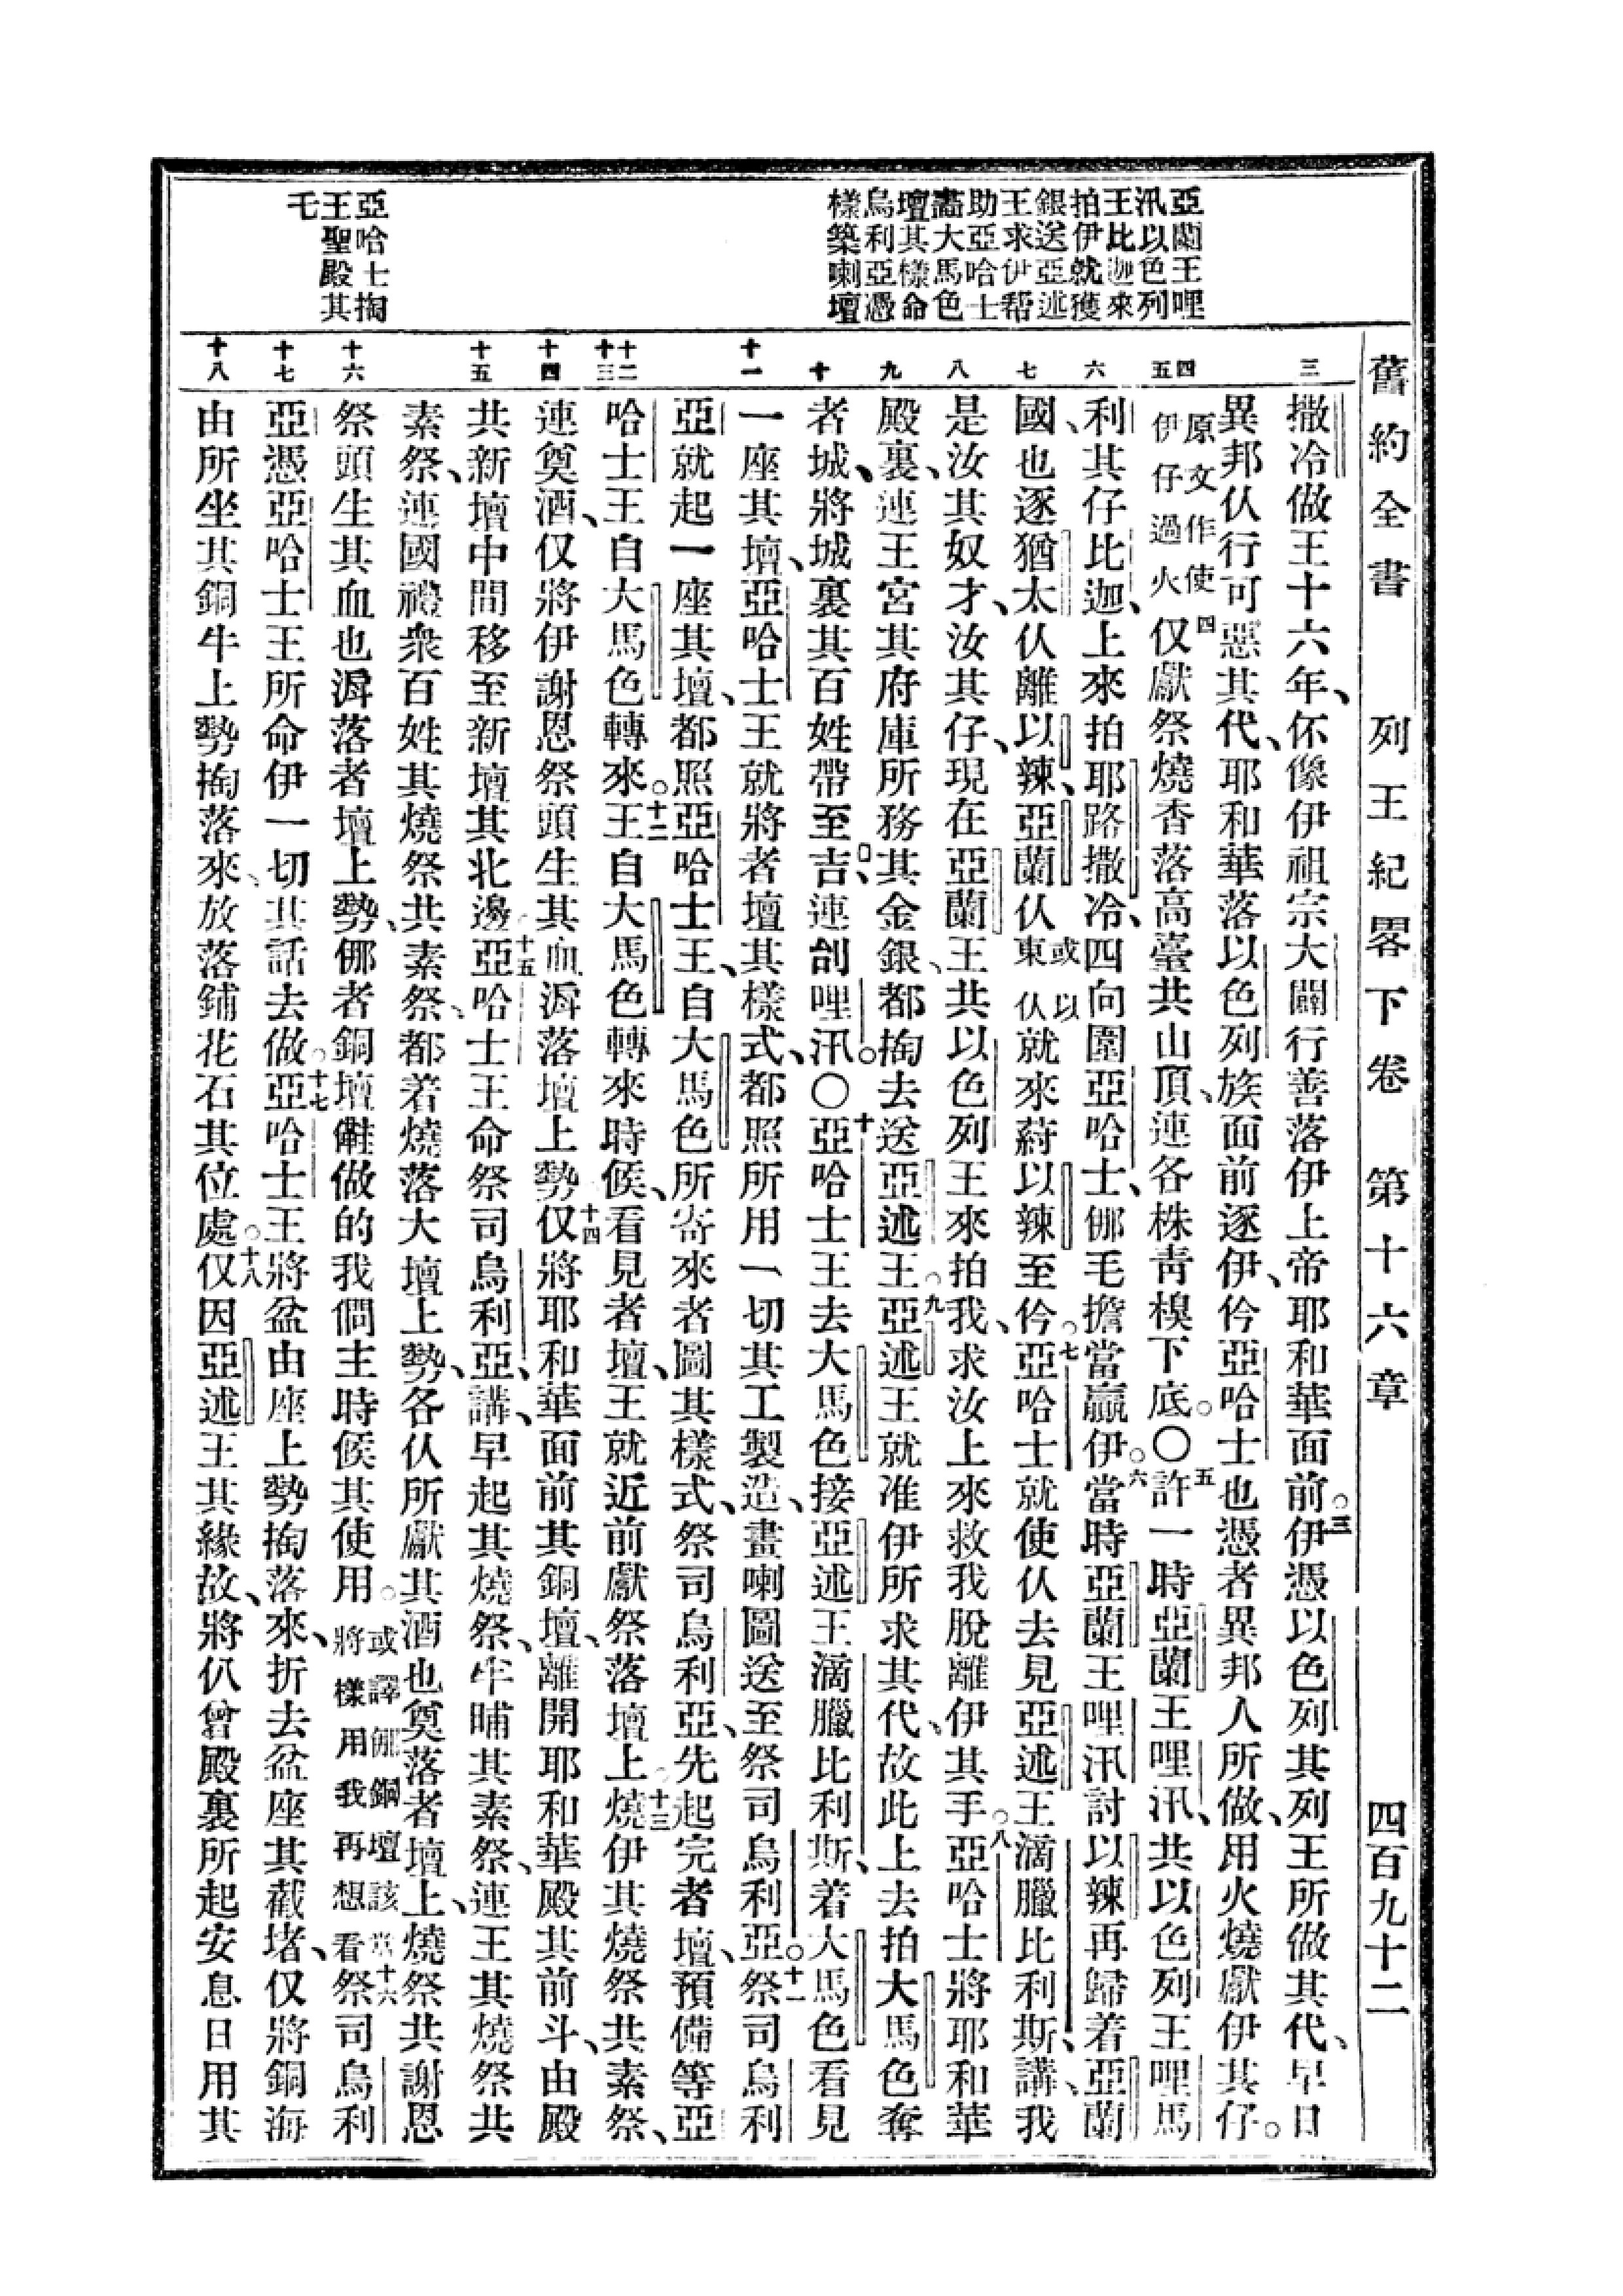 舊約全書 列王紀畧下卷 第十六章 四百九十二
亞蘭王哩
汛以色列
王比迦來
拍伊就獲
銀送亞述
王求伊帮
助亞哈士
畫大馬色
壇其樣命
烏利亞憑
樣築喇壇
亞哈士掏
王聖殿其
乇
三
四
五
六
七
八
九
十
十一
十二
十三
十四
十五
十六
十七
十八
撒冷做王十六年、伓像伊祖宗大闢行善落伊上帝耶和華面前。三伊憑以色列其列王所做其代、早日
異邦仈行可惡其代、耶和華落以色列族面前逐伊、仱亞哈士也憑者異邦人所做、用火燒獻伊其仔。
原文作使伊仔過火四仅獻祭燒香落高臺共山頂、連各株靑樹下底。〇五許一時亞蘭王哩汛、共以色列王哩馬
利其仔比迦、上來拍耶路撒冷、四向圍亞哈士、𠲥毛擔當贏伊。六當時亞蘭王哩汛討以辣再歸着亞蘭
國、也逐猶太仈離以辣、亞蘭仈或以東仈就來蒞以辣至仱。七亞哈士就使仈去見亞述王滴臘比利斯、講、我
是汝其奴才、汝其仔、現在亞蘭王共以色列王來拍我、求汝上來救我脫離伊其手。八亞哈士將耶和華
殿裏、連王宮其府庫所務其金銀、都掏去送亞述王。九亞述王就准伊所求其代、故此上去拍大馬色奪
者城、將城裏其百姓帶至吉、連刣哩汛。〇十亞哈士王去大馬色接亞述王滴臘比利斯、着大馬色看見
一座其壇、亞哈士王就將者壇其樣式、都照所用一切其工製造、畫喇圖送至祭司烏利亞。十一祭司烏利
亞就起一座其壇、都照亞哈士王、自大馬色所寄來者圖其樣式、祭司烏利亞、先起完者壇、預備等亞
哈士王自大馬色轉來。十二王自大馬色轉來時候、看見者壇、王就近前獻祭落壇上。十三燒伊其燒祭共素祭、
連奠酒、仅將伊謝恩祭頭生其血漘落壇上勢。十四仅將耶和華面前其銅壇、離開耶和華殿其前斗、由殿
共新壇中間移至新壇其北邊。十五亞哈士王命祭司烏利亞、講、早起其燒祭、午晡其素祭、連王其燒祭共
素祭、連國裡衆百姓其燒祭、共素祭、都着燒落大壇上勢、各仈所獻其酒也奠落者壇上、燒祭共謝恩
祭頭生其血也漘落者壇上勢、𠲥者銅壇做的我僩主時候其使用。或譯𠲥銅壇該當將樣用我再想看十六祭司烏利
亞憑亞哈士王所命伊一切其話去做。十七亞哈士王將盆由座上勢掏落來、折去盆座其截堵、仅將銅海
由所坐其銅牛上勢掏落來、放落鋪花石其位處。十八仅因亞述王其緣故、將仈曾殿裏所起安息日用其